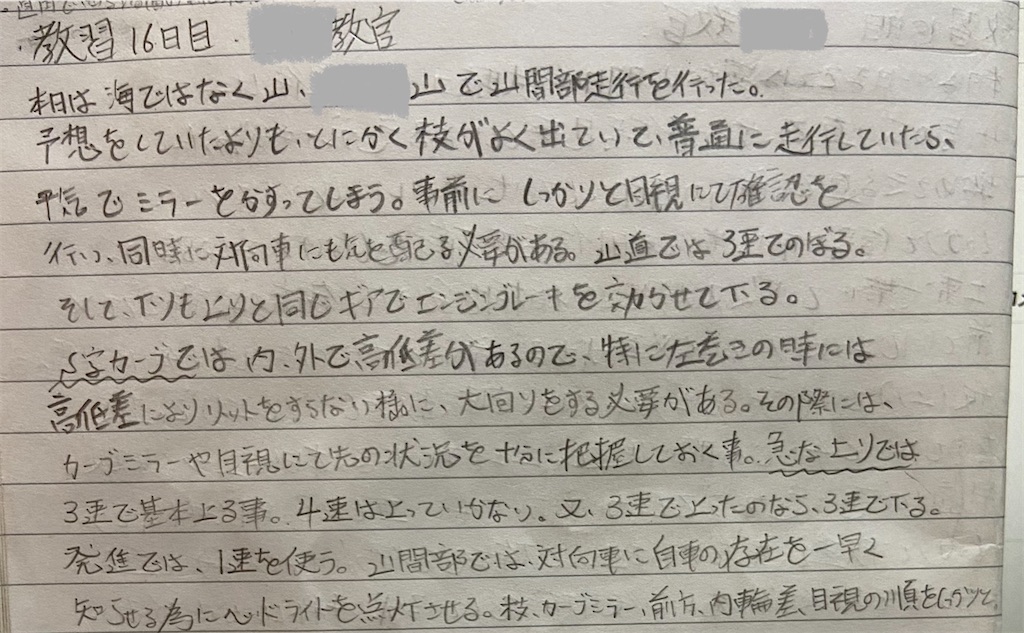 ・教習16日目・教官
本日は海ではなく山、山で山間部走行を行った。
予想をしていたよりも、とにかく枝がよく出ていて、普通に走行していたら、
平気でミラーをかすってしまう。事前にしっかりと目視にて確認を
行い、同時に対向車にも気を配る必要がある。山道では3速でのぼる。
そして、下りも上りと同じギアでエンジンブレーキを効かせて下る。
S字カーブでは内、外で高低差があるので、特に左巻きの時には
高低差によりリットをすらない様に、大回りをする必要がある。その際には、
カーブミラーや目視にて先の状況を十分に把握しておく事。急な上りでは
3速で基本上る事。4速は上っていかない。又、3速で上ったのなら、3速で下る。
発進では、1速を使う。山間部では、対向車に自車の存在を一早く
知らせる為にヘッドライトを点灯させる。枝、カーブミラー、前方、内輪差、目視の順をしっかりと、